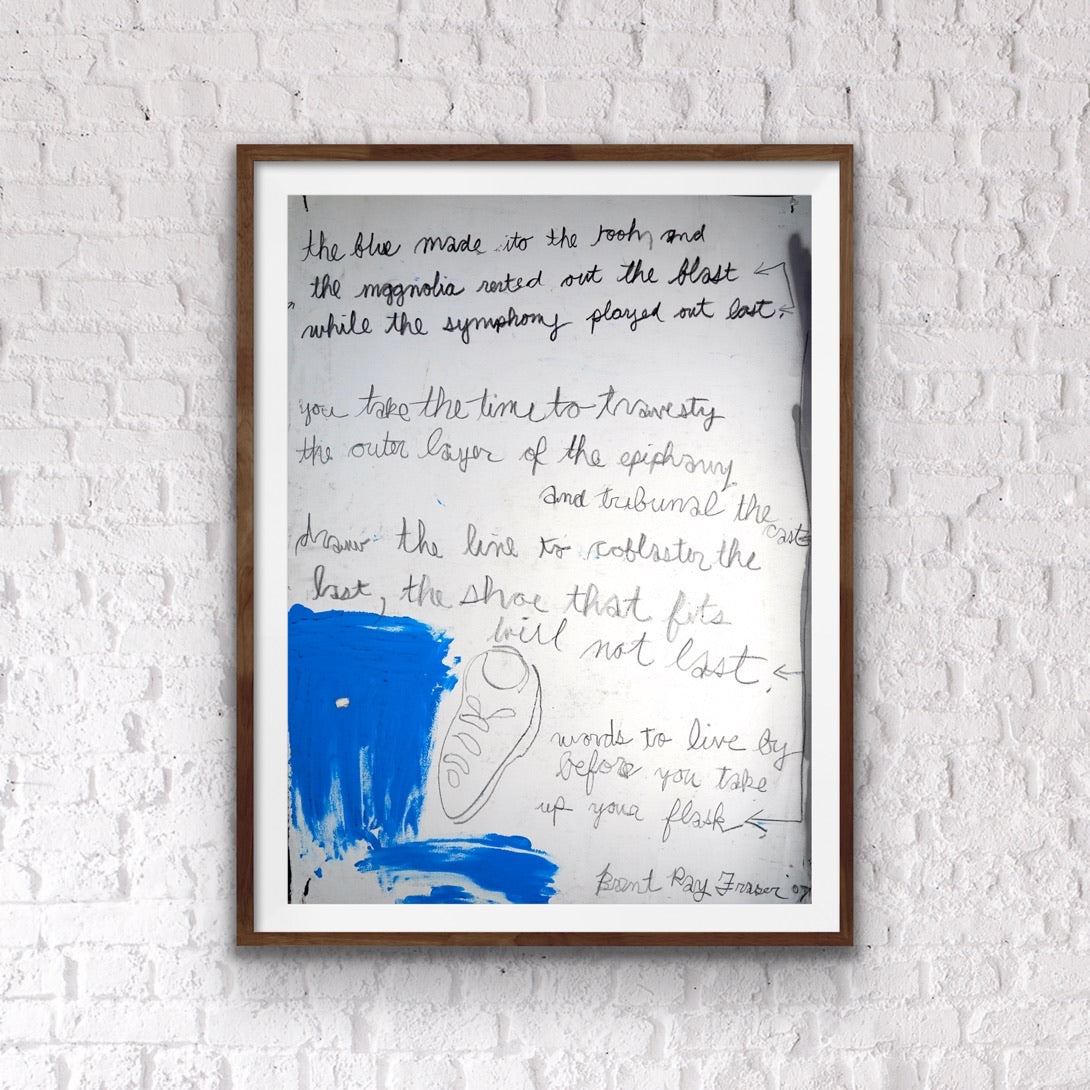 the blue made ito the tooh, and
the magnolia rested out the blast
while the symphony played out last.
you take the time to travesty
the outer layer of the epiphany
and tribunal the
cast
draw the line to the
last, the shoe that fits
will not last.
words to live by
before you take
up your flask
Brent Ray Fraser '07